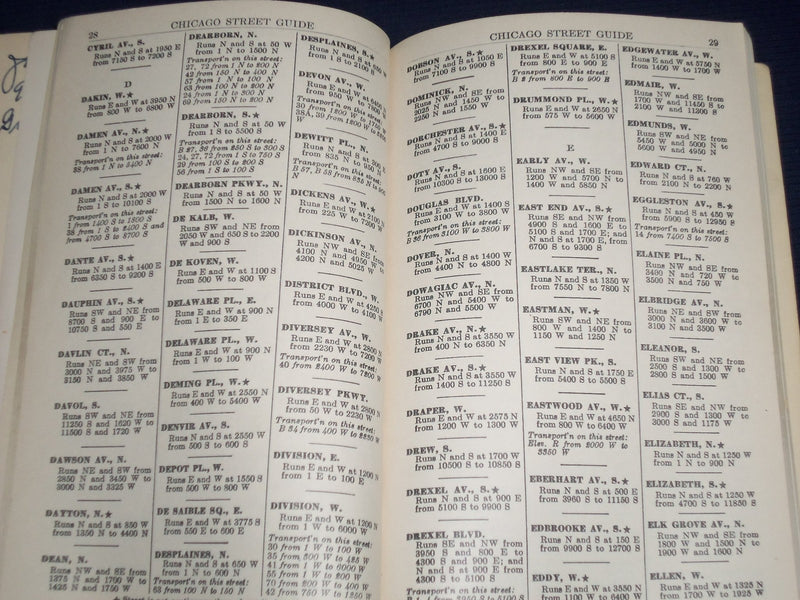 28
CHICAGO STREET GUIDE
CYRIL AV., S.
Runs N and S at 1950 E
from 7150 S to 7200 S
D
DAKIN, W.★
Runs E and W at 3950 N
from 800 W to 6800 W
DAMEN AV., N.★
Runs N and S at 2000 W
from 1 N to 7600 N
Transport'n on this street:
38 from 1 N to 5400 N
DAMEN AV., S.★
Runs N and S at 2000 W
from 1 S to 10100 S
Transport'n on this street:
1 from 1200 S to 1800 S
38 from 1 S to 2400 S and
from 4700 S to 8700 S
DANTE AV., S.★
Runs N and S at 1400 E
from 6350 S to 9200 S
DAUPHIN AV., S.★
Runs SW and NE from
8700 S and 900 E to
10750 S and 550 E
DAVLIN CT., N.
Runs NE and SW from
3000 N and 3975 W to
3150 N and 3850 W
DAVOL, S.
Runs SW and NE from
11250 S and 1620 W to
11500 S and 1720 W
DAWSON AV., N.
Runs NE and SW from
2850 N and 3450 W to
3000 N and 3325 W
DAYTON, N.★
Runs N and S at 850 W
from 1350 N to 4400 N
DEAN, N.
Runs NW and SE from
1375 N and 1700 W to
1425 N and 1750 W
DEARBORN, N.
Runs N and S at 50 W
from 1 N to 1500 N
Transport'n on this street:
27, 72 from 1 N to 800 N
42 from 150 N to 400 N
57 from 1 N to 100 N
63 from 100 N to 800 N
24 from 1 N to 800 N
69 from 150 N to 800 N
DEARBORN, S.★
Runs N and S at 50 W
from 1 S to 5500 S
Transport'n on this street:
24, 27, 72 from 1 S to 750 S
29 from 100 S to 800 S
56 from 1 S to 100 S
DEARBORN PKWY., N.
Runs N and S at 50 W
from 1500 N to 1600 N
DE KALB, W.
Runs SW and NE from
2050 W and 650 S to 2200
W and 900 S
DE KOVEN, W.
Runs E and W at 1100 S
from 500 W to 800 W
DELAWARE PL., E.
Runs E and W at 900 N
from 1 E to 350 E
DELAWARE PL., W.
Runs E and W at 900 N
from 1 W to 100 W
DEMING PL., W.★
Runs E and W at 2550 N
from 400 W to 5400 W
DENVIR AV., S.
Runs N and S at 2550 W
from 500 S to 600 S
DEPOT PL., W.
Runs E and W at 1550 S
from 500 W to 800 W
DE SAIBLE SQ., E.
Runs E and W at 3775 S
from 550 E to 600 E
DESPLAINES, N.
Runs N and S at 650 W
from 1 N to 600 N
Transport'n on this street:
63 from 100 N to 150 N
DESPLAINES, S.★
Runs N and S at
from 1 S to 2100 S
DEVON AV., W.
Runs E and W at 6400
from 950 W to
Transport'n on this street:
DEWITT PL., N.
Runs N and S at
from 835 N to 950 N
Transport'n on this street:
B 57, B 58 from 835 N to
N
DICKENS AV., W.★
Runs E and W at 2100 N
from 225 W to 7200 W
DICKINSON AV., N.
Runs NW and SE from
4100 N and 4950 W to
4200 N and 5025 W
DISTRICT BLVD., W.
Runs E and W at 4250 S
from 4000 W to 4100 W
DIVERSEY AV., W.
Runs E and W at 2800 N
from 2230 W to 7200 W
Transport'n on this street:
40 from 2400 W to 7200 W
DIVERSEY PKWY.
Runs E and W at 2800 N
from 50 W to 2230 W
Transport'n on this street:
B 34 from 400 W to
DIVISION, E.
Runs E and W at 1200 N
from 1 E to 100 E
DIVISION, W.
Runs E and W at 1200 N
from 1 W to 6000 W
Transport'n on this street:
30 from 1 W to 100 W
35 from 300 W to 425 W
41 from 1 W to 6000 W
55 from 1 W to 800 W
70 from 200 W to 400 W
CHICAGO STREET GUIDE
29
DOBSON AV., S.★
Runs N and S at 1050 E
from 7100 S to 9900 S
DOMINICK, N.
Runs NW and SE from
2025 N and 1450 W to
2250 N and 1550 W
DORCHESTER AV., S.★
Runs N and S at 1400 E
from 4700 S to 9000 S
DOTY AV., S.
Runs N and S at 1600 E
from 10300 S to 13000 S
DOUGLAS BLVD.
Runs E and W at 1400 S
from 3100 W to 3800 W
Transport'n on this street:
B 36 from 3100 W to 3800 W
DOVER, N.
Runs N and S at 1400 W
from 4400 N to 4800 N
DOWAGIAC AV., N.
Runs NW and SE from
6700 N and 5400 W to
6790 N and 5500 W
DRAKE AV., N.★
Runs N and S at 3550 W
from 400 N to 6350 N
DRAKE AV., S.★
Runs N and S at 3550 W
from 1400 S to 11250 S
DRAPER, W.
Runs E and W at 2575 N
from 1200 W to 1300 W
DREW, S.
Runs N and S at 1700 W
from 10500 S to 10850 S
DREXEL AV., S.★
Runs N and S at 900 E
from 5100 S to 9900 S
DREXEL BLVD.
Runs SE and NW from
3950 S and 800 E to
4300 S and 900 E; and
N and S at 900 E from
4300 S to 5100 S
Transport'n on this street:
DREXEL SQUARE, E.
Runs E and W at 5100 S
from 800 E to 900 E
Transport'n on this street:
B 2 from 800 E to 900 E
DRUMMOND PL., W.★
Runs E and W at 2650 N
from 575 W to 5600 W
E
EARLY AV., W.
Runs NW and SE from
1200 W and 5700 N to
1400 W and 5850 N
EAST END AV., S.★
Runs SE and NW from
4900 S and 1600 E to
5100 S and 1700 E; and
N and S at 1700 E, from
6700 S to 9300 S
EASTLAKE TER., N.
Runs N and S at 1350 W
from 7550 N to 7800 N
EASTMAN, W.★
Runs SW and NE from
800 W and 1400 N to
1150 W and 1250 N
EAST VIEW PK., S.
Runs N and S at 1750 E
from 5400 S to 5500 S
EASTWOOD AV., W.★
Runs E and W at 4650 N
from 800 W to 6400 W
Transport'n on this street:
Elev. R from 2000 W to
3350 W
EBERHART AV., S.★
Runs N and S at 500 E
from 3960 S to 11150 S
EDBROOKE AV., S.★
Runs N and S at 150 E
from 9900 S to 12700 S
EDDY, W.★
Runs E and W at 3550 N
from 1100 W to 6400 W
EDGEWATER AV., W.
Runs E and W at 5750 N
from 1400 W to 1700 W
EDMAIR, W.
Runs NW and SE from
1700 W and 11400 S to
1800 W and 11300 S
EDMUNDS, W.
Runs SW and NE from
5450 W and 5000 N to
5600 W and 4950 N
EDWARD CT., N.
Runs N and S at 760 W
from 2100 N to 2200 N
EGGLESTON AV., S.★
Runs N and S at 450 W
from 5900 S to 12950 S
Transport'n on this street:
14 from 7400 S to 7500 S
ELAINE PL., N.
Runs NW and SE from
3400 N and 720 W to
3500 N and 750 W
ELBRIDGE AV., N.
Runs NW and SE from
3000 N and 3600 W to
3100 N and 3500 W
ELEANOR, S.
Runs SW and NE from
2500 S and 1300 W to
2800 S and 1500 W
ELIAS CT., S.
Runs SE and NW from
2900 S and 1300 W to
3000 S and 1175 W
ELIZABETH, N.★
Runs N and S at 1250 W
from 1 N to 900 N
ELIZABETH, S.★
Runs N and S at 1250 W
from 4700 S to 11850 S
ELK GROVE AV., N.
Runs NW and SE from
1800 W and 1500 N to
1900 W and 1600 N
ELLEN, W.
Runs E and W at 1325 N
from 1700 W to 1925 W